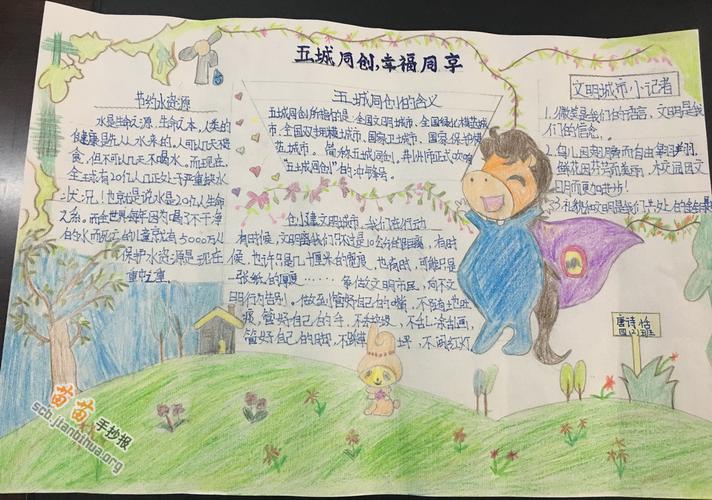 五城同创,幸福同享
节约水资源
水是生命之源,生命之本,人类的
健康是先从水来的,人可以几天不粮
食,但不可以几天不喝水。而现在,
全球有20亿人正处于严重缺水
状况!也就是说水是20亿人生命
之系,而全世界每年因为喝了不干净
的水而死亡的儿童就有5000万人
保护水资源是现在
重中之重。
五城同创的含义
五城同创所指的是:全国文明城市、全国绿化模范城
市、全国双拥模范城市、国家卫生城市、国家环保模
范城市。简称五城同创。
"五城同创"的冲锋号。
创建文明城市 我们在行动
有时候,文明离我们只不过是10公分的距离,有时
候,也许只是几十厘米的宽度,也有时,可能只是
一张纸的厚度……争做文明市民,向不文
明行为告别。做到管好自己的嘴,不随地吐
痰,管好自己的手,不丢垃圾,不乱涂乱画,
管好自己的脚,不踩草坪,不闯红灯
文明城市小记者
1.微笑是我们的语言,文明是我
们的信念。
2.鸟儿因翱翔而自由
做花因芬芳而美丽,
明而更加进步!
3.礼貌
唐诗怡
四(2)班
苗苗手抄报
scb.jianbihua.org